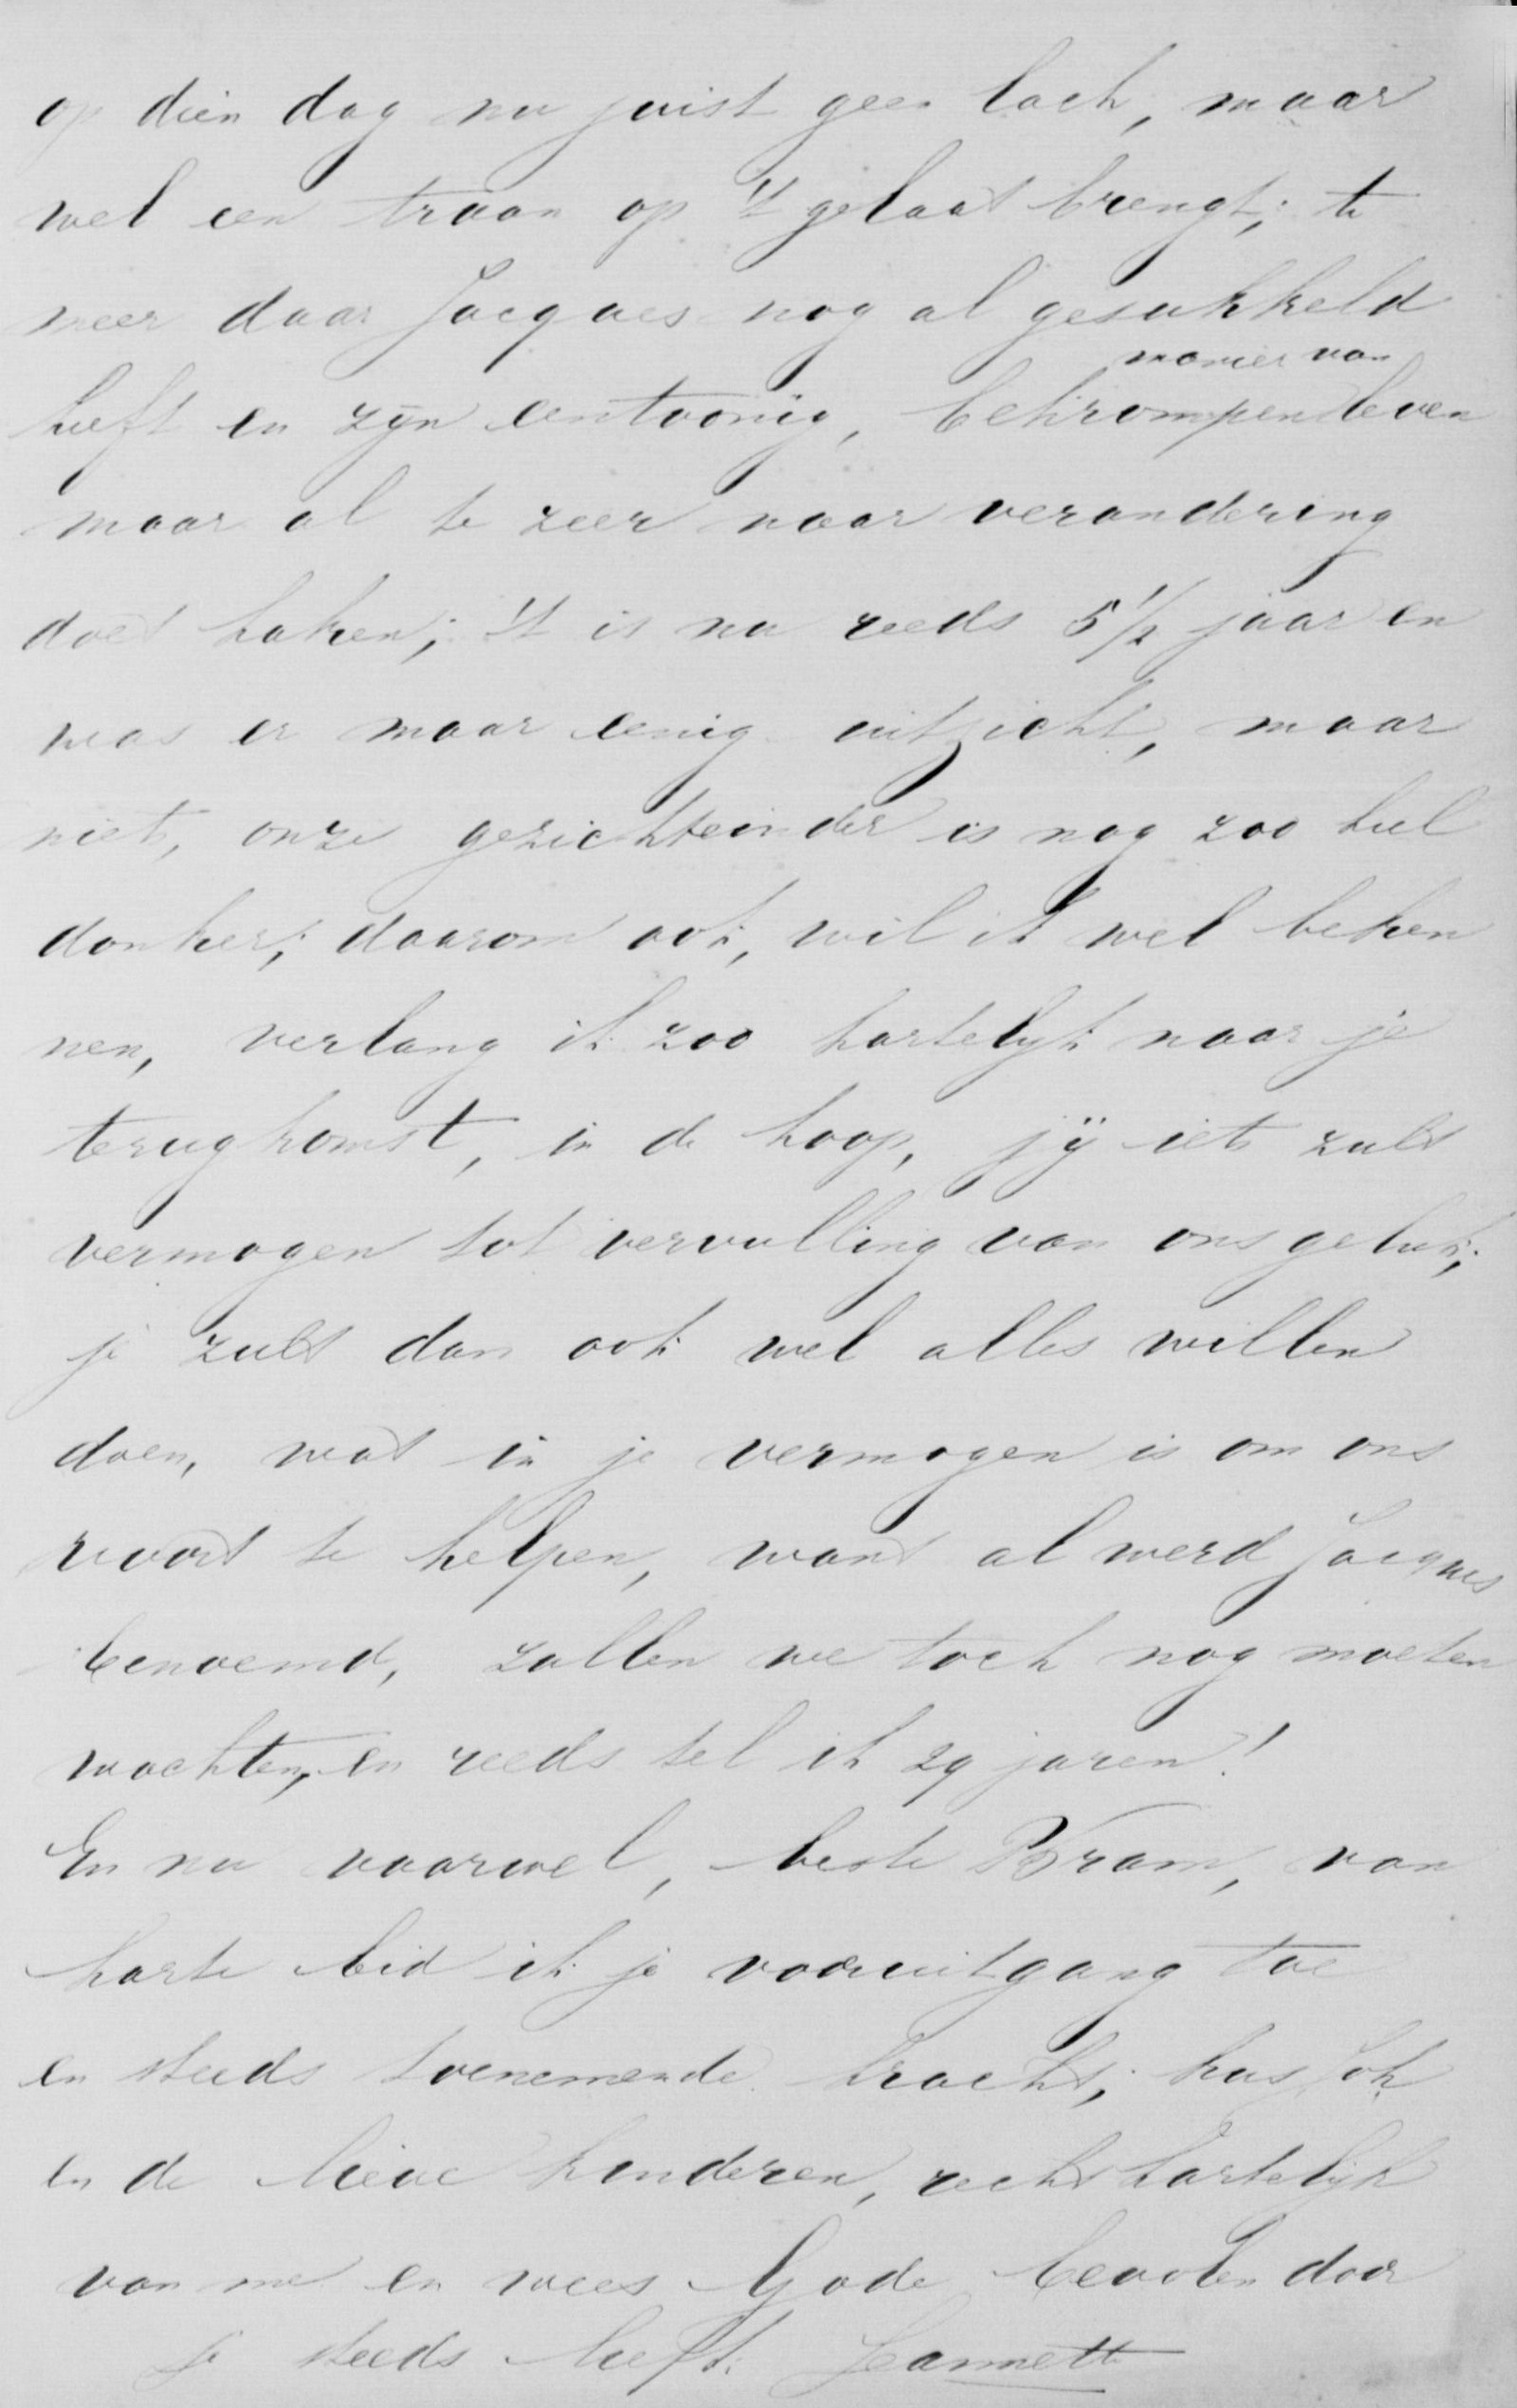 op dien dag nu juist geen lach, maar
wel een traan op 't gelaat brengt; te
meer daar Jacques nog al gesukkeld
heeft en zijn eentoonig, bekrompen manier van leven
maar al te zeer naar verandering
doet haken; 't is nu reeds 5 1/2 jaar en
was er maar eenig uitzicht, maar
niets, onze gezichteinder is nog zoo heel
donker; daarom ook, wil ik wel beken
nen, verlang ik zoo hartelijk naar je
terugkomst, in de hoop, jij iets zult
vermogen tot vervulling van ons geluk;
je zult dan ook wel alles willen
doen, wat in je vermogen is om ons
voort te helpen, want al werd Jacques
benoemd, zullen we toch nog moeten
wachten, en reeds tel ik 29 jaren!
En nu vaarwel, beste Bram, van
harte bid ik je vooruitgang toe
en steeds toenemende kracht; kus
en de lieve kinderen, recht hartelijk
van me en wees Gode bevolen door
je steeds liefh. Jeannette